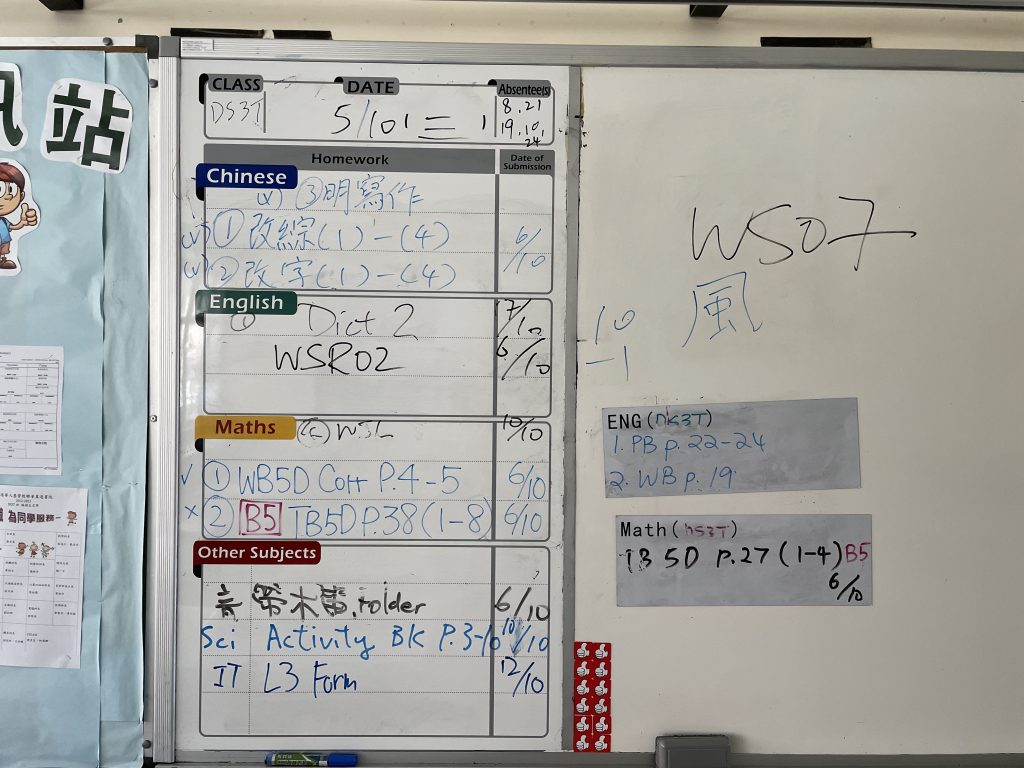 站
CLASS DATE Absentee(s)
DS3T 5/10 (三) 8.21
19.10.
24
Homework Date of Submission
Chinese
③明寫作
(✓) ① 改綜(1)-(4) 6/10
(✓) ② 改字(1)-(4)
English
① Dict 2 7/10
WSR02 6/10
Maths
WSL 10/10
✓ ① WB5D Corr P.4-5 6/10
× ② B5 TB5D P.38 (1-8) 6/10
Other Subjects
Folder 6/10
Sci Activity BK P.3-10 10/10
IT L3 Form 12/10
WS07
風
10
-1
ENG (DS3T)
1. PB p. 22-24
2. WB p. 19
Math (DS3T)
TB 5D p.27 (1-4) B5
6/10
為同學服務